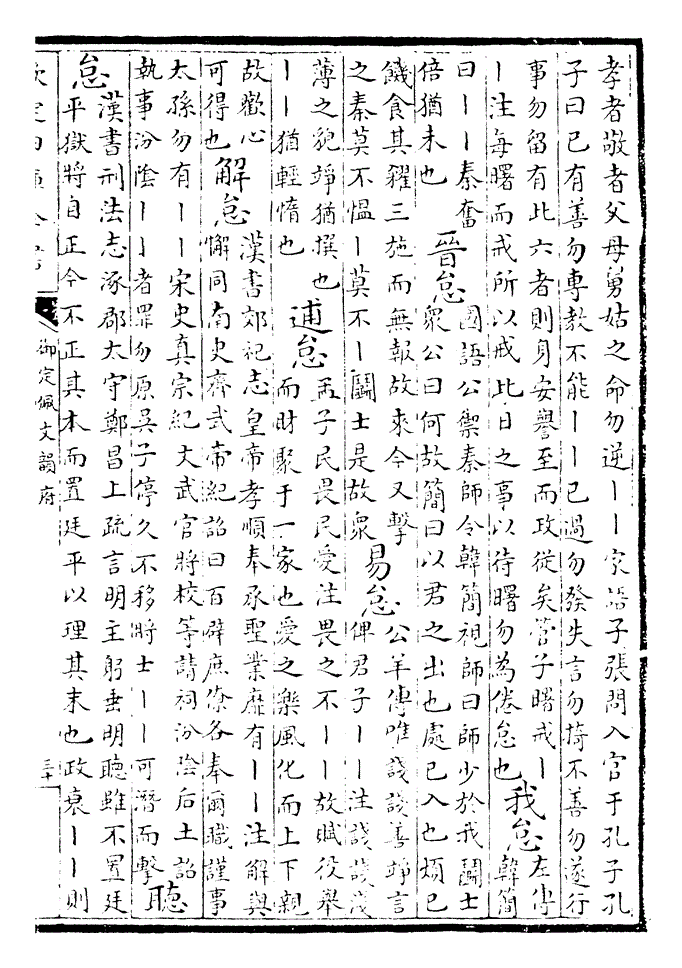 孝者敬者父母舅姑之命勿逆丨丨家語子張問入官于孔子孔
子曰已有善勿專教不能丨丨已過勿發失言勿掎不善勿遂行
事勿留有此六者則身安譽至而政從矣管子曙戒丨
丨注每曙而戒所以戒此日之事以待曙勿為倦怠也
我怠
左傳
韓簡
曰丨丨秦奮
倍猶未也
晉怠
國語公禦秦師令韓簡視師曰師少於我鬬士
眾公曰何故簡曰以君之出也處已入也煩已
饑食其糴三施而無報故來今又擊
之秦莫不慍丨莫不丨鬬士是故眾
易怠
公羊傳唯諓諓善竫言
俾君子丨丨注諓諓淺
薄之貌竫猶撰也
丨丨猶輕惰也
逋怠
孟子民畏民愛注畏之不丨丨故賦役舉
而財聚于一家也愛之樂風化而上下親
故歡心
可得也
解怠
漢書郊祀志皇帝孝順奉承聖業靡有丨丨注解與
懈同南史齊武帝紀詔曰百辟庶僚各奉爾職謹事
太孫勿有丨丨宋史真宗紀文武官將校等請祠汾陰后土詔
執事汾陰丨丨者罪勿原吳子停久不移將士丨丨可潛而擊
聽
怠
漢書刑法志涿郡太守鄭昌上疏言明主躬垂明聽雖不置廷
平獄將自正今不正其本而置廷平以理其末也政衰丨丨則
欽定四庫全書
御定佩文韻府
三十